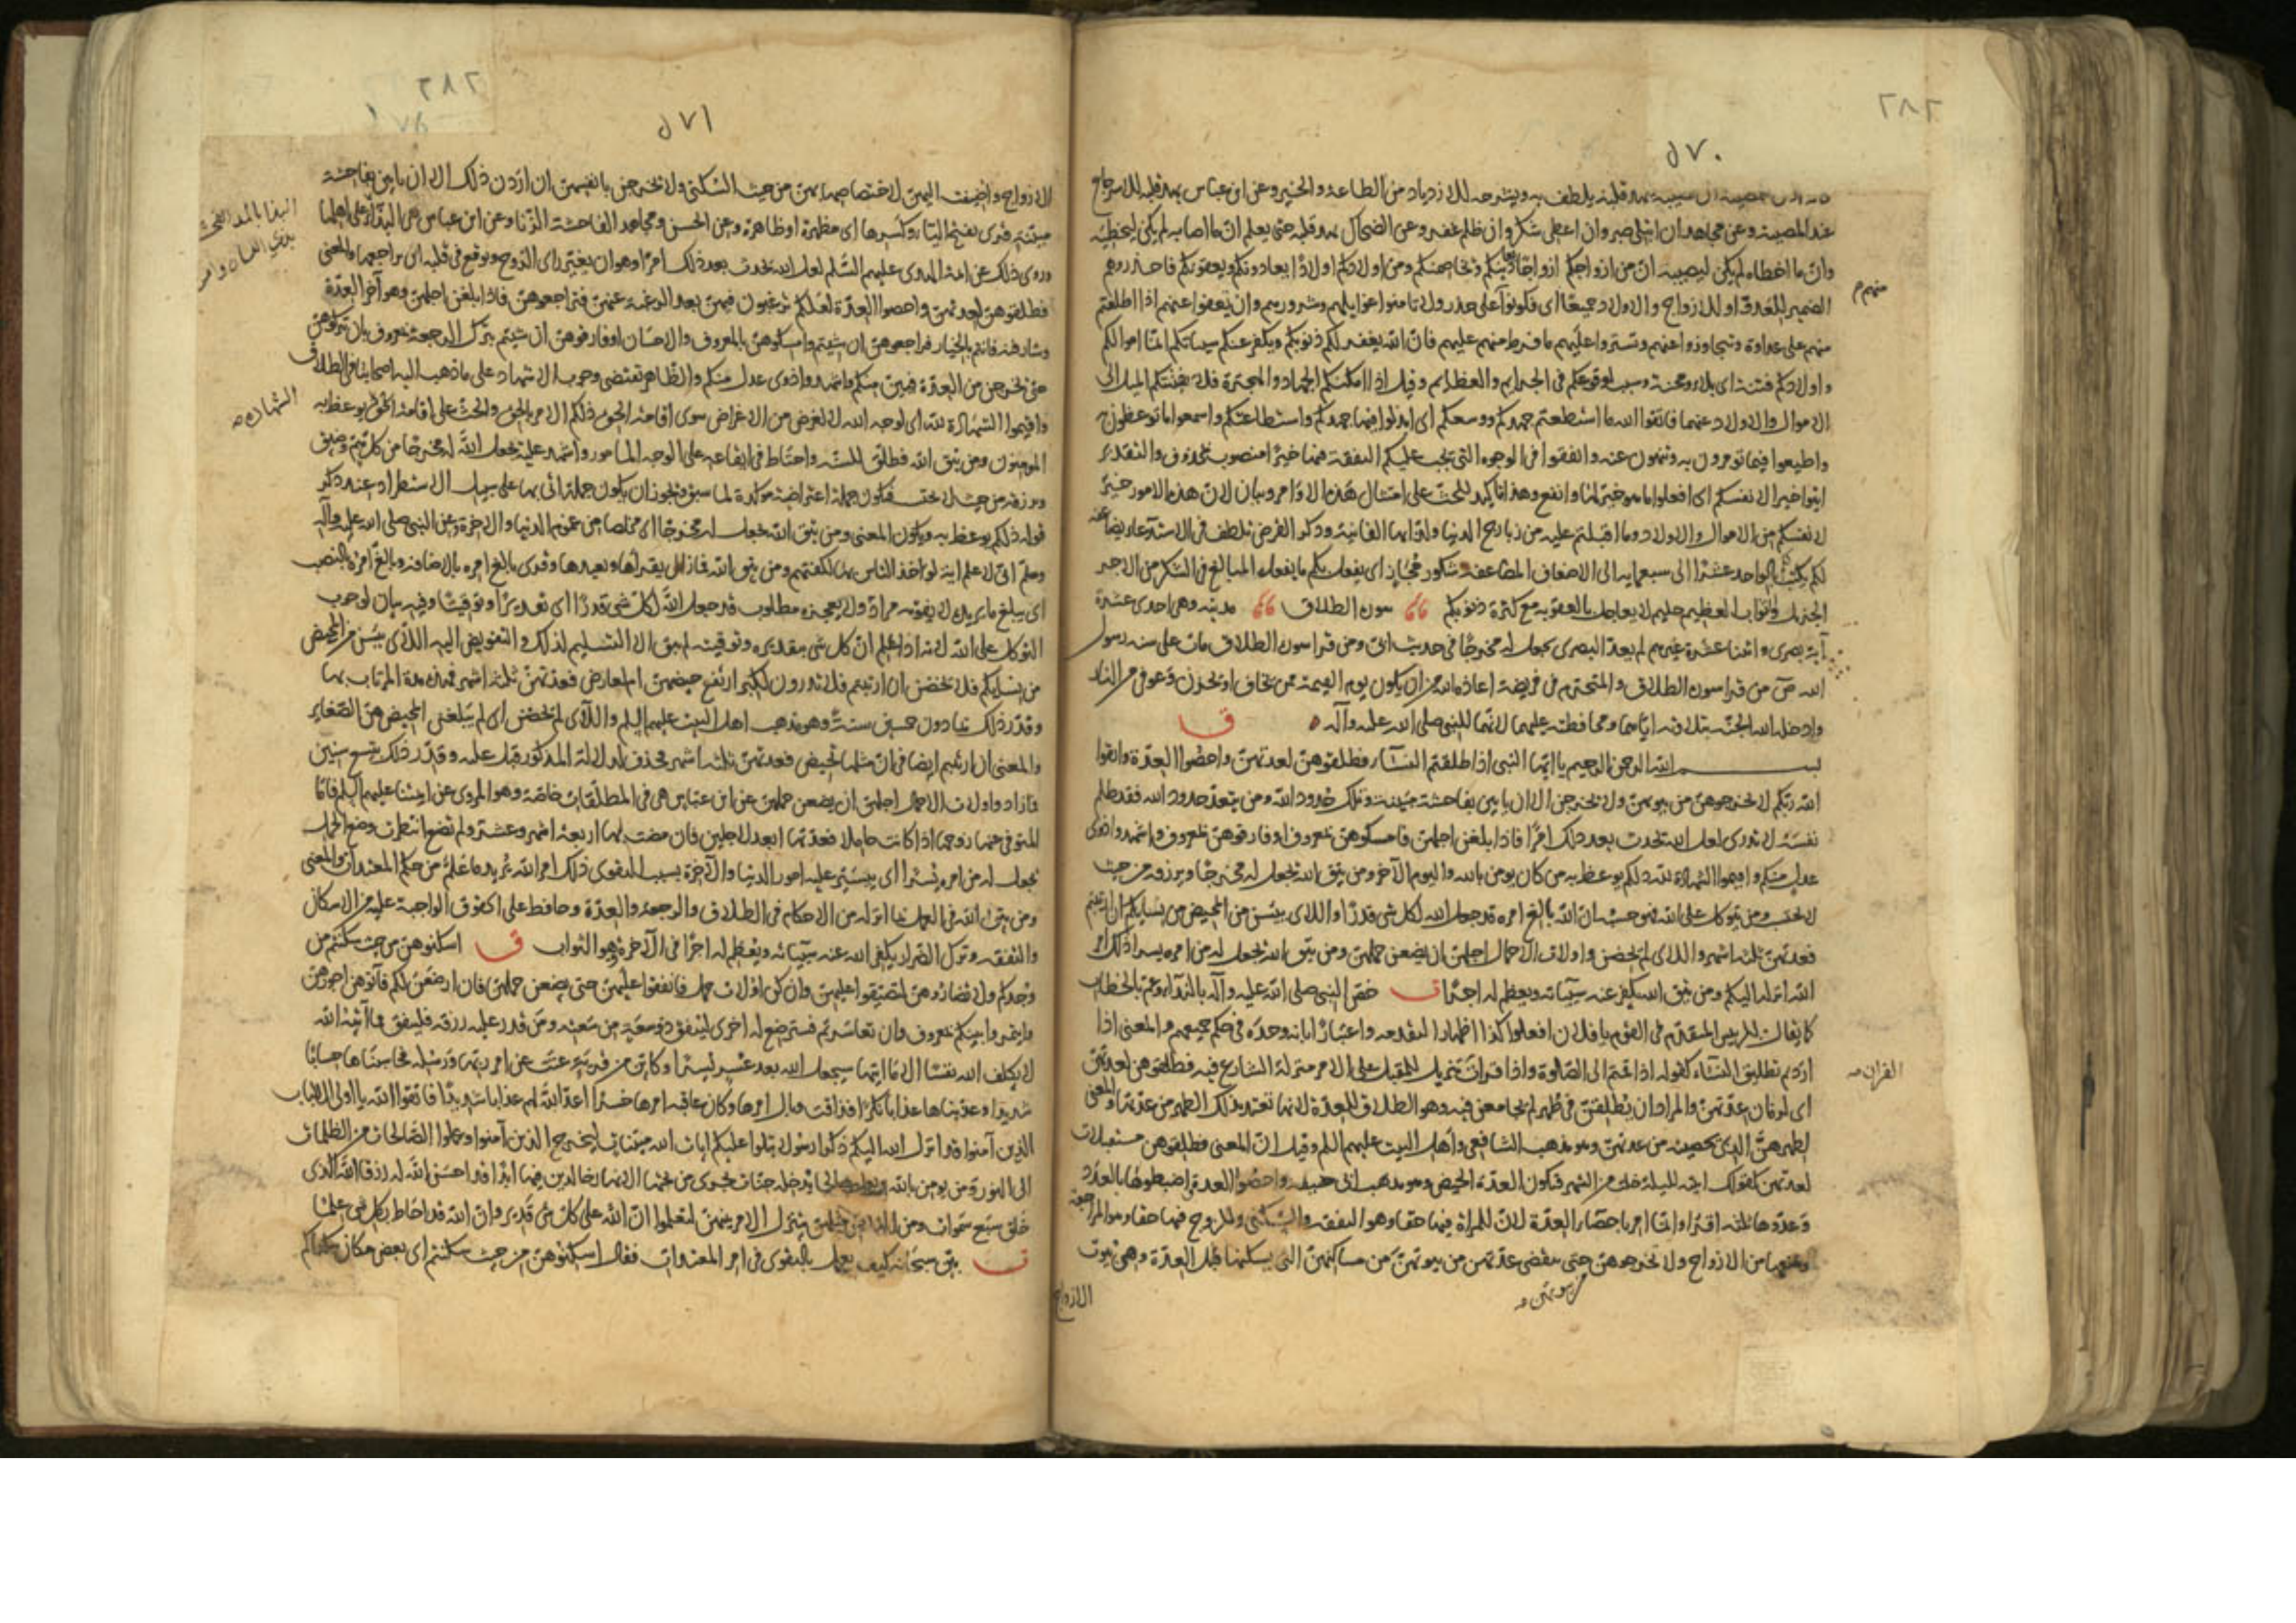 ٢٨٢
٥٧٠
عند المصيبة وعن مجاهد ان ابتلى صبر وان اعطى شكر وان ظلم غفر وعن الضحاك يهد قلبه حتى يعلم ان ما اصابه لم يكن ليخطيه
وان ما اخطاه لم يكن ليصيبه ان من ازواجكم ازواجا يعادينكم ويخاصمنكم ومن اولادكم اولادا يعادونكم ويعقونكم فاحذروهم
الضمير للعدو او للازواج والاولاد جميعا اى فكونوا على حذر ولا تامنوا غوايلهم وشرورهم وان تعفوا عنهم اذا اطلعتم
منهم على عداوة وتتجاوزوا عنهم وتستروا عليهم ما فرط منهم عليهم فان الله يغفر لكم ذنوبكم ويكفر عنكم سيئاتكم انما اموالكم
واولادكم فتنة اى بلاء ومحنة وسبب لوقوعكم فى الجرايم والعظايم وقيل اذا امكنكم الجهاد والهجرة فلا يفتنكم الميل الى
الاموال والاولاد عنهما فاتقوا الله ما استطعتم جهدكم ووسعكم اى ابذلوا فيها جهدكم واستطاعتكم واسمعوا ما توعظون به
واطيعوا فيما تومرون به وتنهون عنه وانفقوا فى الوجوه التى تجب عليكم النفقة فيها خيرا منصوب بمحذوف والتقدير
ايتوا خيرا لانفسكم اى افعلوا ما هو خير لها وانفع وهذا تاكيد للحث على امتثال هذه الاوامر وبيان لان هذه الامور خير
لانفسكم من الاموال والاولاد وما اقبلتم عليه من زبارج الدنيا ولذاتها الفانية وذكر القرض تلطف فى الاستدعا يضاعفه
لكم يكتب بالواحد عشرا الى سبعمايه الى الاضعاف المضاعفه شكور مجاز اى يفعل بكم ما يفعل المبالغ فى الشكر من الاجر
الجزيل والثواب العظيم حليم لا يعاجل بالعقوبة مع كثرة ذنوبكم سورة الطلاق مدنية وهى احدى عشرة
آية بصرى واثنتا عشرة غيرهم لم يعد البصرى يجعل له مخرجا فى حديث ابى ومن قرا سورة الطلاق مات على سنه رسول
الله ص من قرا سورة الطلاق والتحريم فى فريضة اعاذه الله من ان يكون يوم القيمة ممن يخاف او يحزن وعوفى من النار
وادخله الله الجنة بتلاوته اياهما ومحافظته عليهما لانهما للنبى صلى الله عليه وآله ق
بسم الله الرحمن الرحيم يا ايها النبى اذا طلقتم النساء فطلقوهن لعدتهن واحصوا العدة واتقوا
الله ربكم لا تخرجوهن من بيوتهن ولا يخرجن الا ان ياتين بفاحشة مبينة وتلك حدود الله ومن يتعد حدود الله فقد ظلم
نفسه لا تدرى لعل الله يحدث بعد ذلك امرا فاذا بلغن اجلهن فامسكوهن بمعروف او فارقوهن بمعروف واشهدوا ذوى
عدل منكم واقيموا الشهادة لله ذلكم يوعظ به من كان يومن بالله واليوم الآخر ومن يتق الله يجعل له مخرجا ويرزقه من حيث
لا يحتسب ومن يتوكل على الله فهو حسبه ان الله بالغ امره قد جعل الله لكل شى قدرا واللاى يئسن من المحيض من نسايكم ان ارتبتم
فعدتهن ثلثه اشهر واللاى لم يحضن واولات الاحمال اجلهن ان يضعن حملهن ومن يتق الله يجعل له من امره يسرا ذلك امر
الله انزله اليكم ومن يتق الله يكفر عنه سيئاته ويعظم له اجرا ت خص النبى صلى الله عليه وآله بالنداء وعم بالخطاب
كما يقال لرييس المقدم فى القوم يا فلان افعلوا كذا اظهارا لتقدمه واعتبارا بانه وحده فى حكم جميعهم والمعنى اذا
اردتم تطليق النساء كقوله اذا قمتم الى الصلوة واذا قرات تنزيل المقبل على الامر منزلة الشارع فيه فطلقوهن لعدتهن
اى لزمان عدتهن والمراد ان يطلقهن فى طهر لم يجامعن فيه وهو الطلاق للعدة لانها تعتد بذلك الطهر من عدتها والمعنى
لطهرهن الذى يحصينه من عدتهن وهو مذهب الشافعى واهل البيت عليهم السلم وقيل ان المعنى فطلقوهن مستقبلات
لعدتهن كقولك اتيته لليلة خلت من الشهر فتكون العدة الحيض وهو مذهب ابى حنيفه واحصوا العدة اضبطوها بالعدد
وعدوها ثلثه اقراء وانما امر باحصاء العدة لان للمراة فيها حقا وهو النفقه والسكنى وللزوج فيها حقا وهو المراجعة
ومنعها من الازواج ولا تخرجوهن حتى تنقضى عدتهن من بيوتهن من مساكنهن التى يسكنها قبل العدة وهى بيوت
الازواج
منهم
القران
٢٨٢
٥٧١
الازواج واضيفت اليهن لاختصاصها بهن من حيث السكنى ولا يخرجن بانفسهن ان اردن ذلك الا ان ياتين بفاحشة
مبينة قرى بفتح الياء وكسرها اى مظهرة او ظاهرة وعن الحسن ومجاهد الفاحشة الزنا وعن ابن عباس هى البذاء على اهلها
وروى ذلك عن ائمة الهدى عليهم السلم لعل الله يحدث بعد ذلك امرا وهو ان يغير راى الزوج ويوقع فى قلبه ان يراجعها والمعنى
فطلقوهن لعدتهن واحصوا العدة لعلكم ترغبون فيهن بعد الرغبة عنهن فتراجعوهن فاذا بلغن اجلهن وهو آخر العدة
وشارفنه فانتم بالخيار فراجعوهن ان شيتم وامسكوهن بالمعروف والاحسان او فارقوهن ان شيتم بترك الرجعة بمعروف بان تتركوهن
حتى يخرجن من العدة فيبن منكم واشهدوا ذوى عدل منكم والظاهر تقتضى وجوب الاشهاد على ما ذهب اليه اصحابنا فى الطلاق
واقيموا الشهادة لله اى لوجه الله لا لغرض من الاغراض سوى اقامة الحق ذلكم الامر بالحق والحث على اقامة الحق يوعظ به
المومنون ومن يتق الله فطلق للسنه واحتاط فى ايقاعه على الوجه المامور واشهد عليه يجعل الله له مخرجا من كل هم وضيق
ويرزقه من حيث لا يحتسب فتكون جملة اعتراضية موكدة لما سبق ويجوز ان يكون جملة اتى بها على سبيل الاستطراد عند ذكر
قوله ذلكم يوعظ به ويكون المعنى ومن يتق الله يجعل له مخرجا اى مخلصا من غموم الدنيا والاخرة وعن النبى صلى الله عليه وآله
وسلم انى لاعلم اية لو اخذ الناس بها لكفتهم ومن يتق الله فما زال يقراها ويعيدها وقرى بالغ امره بالاضافة وبالغ امره بالنصب
اى يبلغ ما يريد لا يفوته مراد ولا يعجزه مطلوب قد جعل الله لكل شى قدرا اى تقديرا وتوقيتا وفيه بيان لوجوب
التوكل على الله لانه اذا علم ان كل شى بتقديره وتوقيته لم يبق الا التسليم لذلك والتفويض اليه اللاى يئسن من المحيض
من نسايكم فلا يحضن ان ارتبتم فلا تدرون لكبر ارتفع حيضهن ام لعارض فعدتهن ثلثه اشهر فهذه مدة المرتاب بها
وقدر ذلك بما دون خمسين سنة وهو مذهب اهل البيت عليهم السلم واللاى لم يحضن اى لم يبلغن المحيض من الصغاير
والمعنى ان ارتبتم ايضا فى ان مثلها تحيض فعدتهن ثلثه اشهر فحذف لدلالة المذكور قبل عليه وقدر ذلك بتسع سنين
فما زاد واولات الاحمال اجلهن ان يضعن حملهن عن ابن عباس هى فى المطلقات خاصة وهو المروى عن ايمتنا عليهم السلم فاما
المتوفى عنها زوجها اذا كانت حاملا فعدتها ابعد الاجلين فان مضت بها اربعة اشهر وعشر ولم تضع انتظرت وضع الحمل
يجعل له من امره يسرا اى ييسر عليه امور الدنيا والآخرة بسبب التقوى ذلك امر الله يريد ما علم من حكم المعتدات والمعنى
ومن يتق الله فى العمل بما انزله من الاحكام فى الطلاق والرجعة والعدة وحافظ على الحقوق الواجبة عليه من الاسكان
والنفقه وترك الضرار يكفر الله عنه سيئاته ويعظم له اجرا فى الآخرة وهو الثواب ق اسكنوهن من حيث سكنتم من
وجدكم ولا تضاروهن لتضيقوا عليهن وان كن اولات حمل فانفقوا عليهن حتى يضعن حملهن فان ارضعن لكم فآتوهن اجورهن
واتمروا بينكم بمعروف وان تعاسرتم فسترضع له اخرى لينفق ذو سعة من سعته ومن قدر عليه رزقه فلينفق مما آتيه الله
لا يكلف الله نفسا الا ما اتيها سيجعل الله بعد عسر يسرا وكاين من قرية عتت عن امر ربها ورسله فحاسبناها حسابا
شديدا وعذبناها عذابا نكرا فذاقت وبال امرها وكان عاقبة امرها خسرا اعد الله لهم عذابا شديدا فاتقوا الله يا اولى الالباب
الذين آمنوا قد انزل الله اليكم ذكرا رسولا يتلوا عليكم ايات الله مبينات ليخرج الذين آمنوا وعملوا الصالحات من الظلمات
الى النور ومن يومن بالله ويعمل صالحا يدخله جنات تجرى من تحتها الانهار خالدين فيها ابدا قد احسن الله له رزقا الله الذى
خلق سبع سموات ومن الارض مثلهن يتنزل الامر بينهن لتعلموا ان الله على كل شى قدير وان الله قد احاط بكل شى علما
ت بين سبحانه كيف يعمل بالتقوى فى امر المعتدات فقال اسكنوهن من حيث سكنتم اى بعض مكان سكناكم
الشهاده